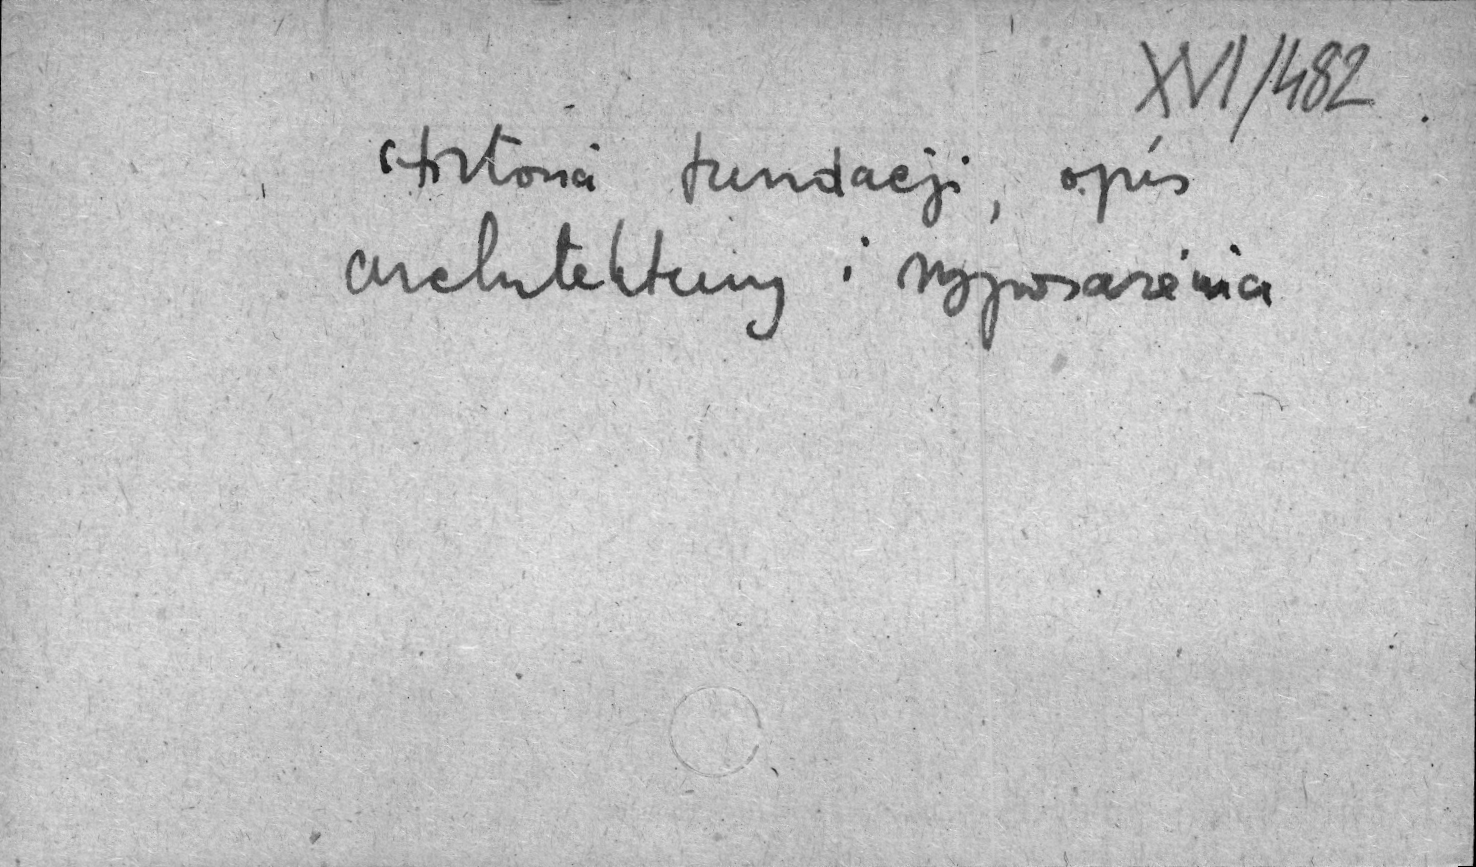 XVI/482
historia fundacji, opis
architektury i wyposażenia